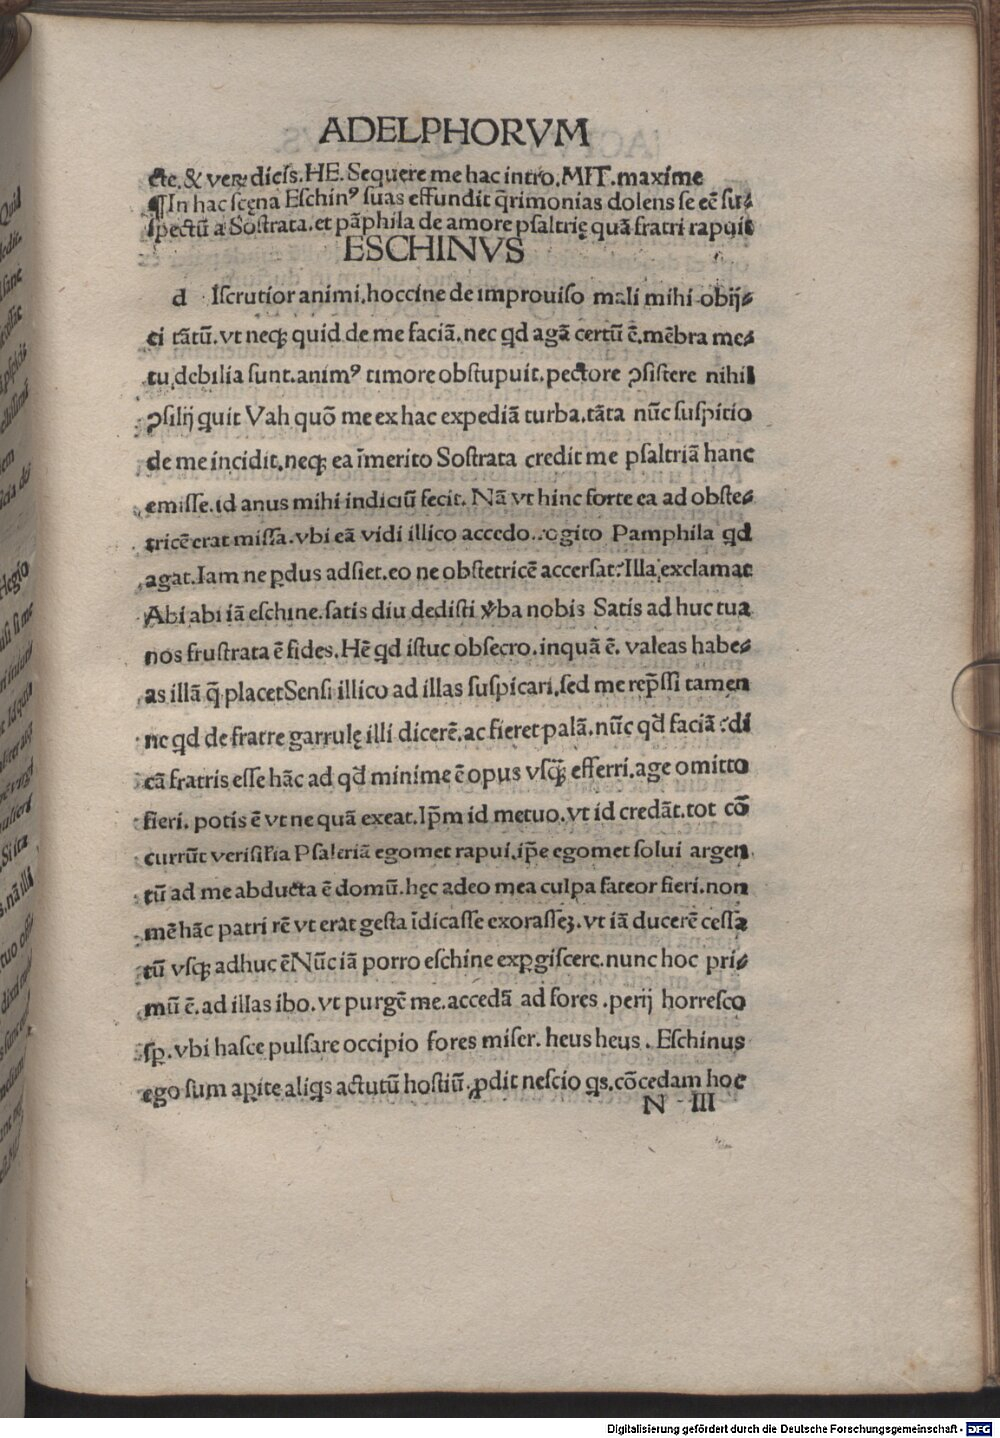 ADELPHORVM
cte. & veꝝ dicis. HE. Sequere me hac intro. MIT. maxime
¶In hac scęna Eschinꝰ suas effundit q̄rimonias dolens se eē su⸗
spectū a Sostrata. et pāphila de amore psaltrię quā fratri rapuit
ESCHINVS
d Iscrutior animi. hoccine de improuiso mali mihi obij⸗
ci tātū. vt neqꝫ quid de me faciā. nec qd agā certū ē. mēbra me⸗
tu debilia sunt. animꝰ timore obstupuit. pectore ꝯsistere nihil
ꝯsilij quit Vah quō me ex hac expediā turba. tāta nūc suspitio
de me incidit. neqꝫ ea īmerito Sostrata credit me psaltriā hanc
emisse. id anus mihi indiciū fecit. Nā vt hinc forte ea ad obste⸗
tricē erat missa. vbi eā vidi illico accedo. rogito Pamphila qd
agat. Iam ne ꝑdus adsiet. eo ne obstetricē accersat? Illa exclamat
Abi abi iā eschine. satis diu dedisti v̄ba nobis Satis ad huc tua
nos frustrata ē fides. Hē qd istuc obsecro. inquā ē. valeas habe⸗
as illā q̄ placet Sensi illico ad illas suspicari. sed me rep̄ssi tamen
ne qd de fratre garrulę illi dicerē. ac fieret palā. nūc qd̄ faciā? di
cā fratris esse hāc ad qd̄ minime ē opus vsqꝫ̄ efferri. age omitto
fieri. potis ē vt ne quā exeat. Ip̄m id metuo. vt id credāt. tot cō
currūt verisil̄ia Psaltriā egomet rapui. ip̄e egomet solui argen
tū ad me abducta ē domū. hęc adeo mea culpa fateor fieri. non
mē hāc patri rē vt erat gesta īdicasse exorasseꝫ. vt iā ducerē cessa
tū vsqꝫ adhuc ē Nūc iā porro eschine exꝑgiscere. nunc hoc pri⸗
mū ē. ad illas ibo. vt purgē me. accedā ad fores. perij horresco
sꝑ. vbi hasce pulsare occipio fores miser. heus heus. Eschinus
ego sum aꝑite aliqs actutū hostiū. ꝓdit nescio qs. cōcedam hoc
N III
Digitalisierung gefördert durch die Deutsche Forschungsgemeinschaft - DFG